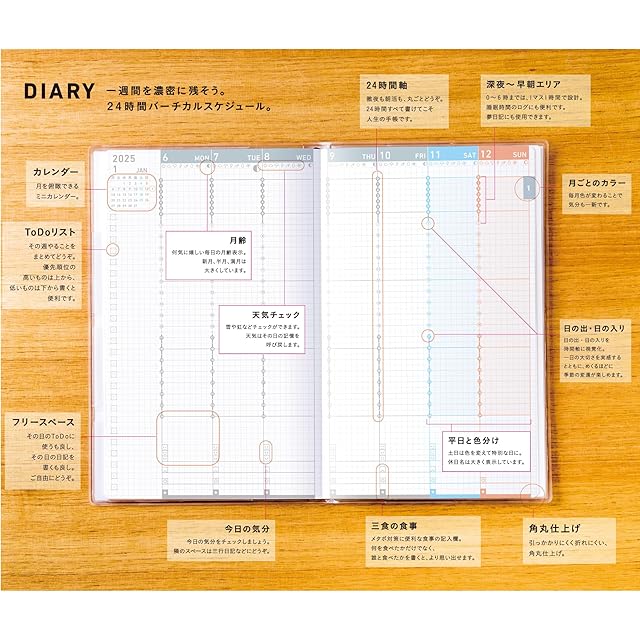 DIARY
一週間を濃密に残そう。
24時間バーチカルスケジュール。
24時間軸
徹夜も朝活も、丸ごとどうぞ。
24時間すべて書けてこそ
人生の手帳です。
深夜〜早朝エリア
0〜6時までは、1マス1時間で設計。
睡眠時間のログにも便利です。
夢日記にも使用できます。
カレンダー
月を俯瞰できる
ミニカレンダー。
2025
1
JAN
6 MON
7 TUE
8 WED
9 THU
10 FRI
11 SAT
12 SUN
1
月ごとのカラー
毎月色が変わることで
気分も一新です。
ToDoリスト
その週やることを
まとめてどうぞ。
優先順位の
高いものは上から、
低いものは下から書くと
便利です。
月齢
何気に嬉しい毎日の月齢表示。
新月、半月、満月は
大きくしています。
天気チェック
雪や虹などチェックができます。
天気はその日の記憶を
呼び戻します。
日の出・日の入り
日の出、日の入りを
時間軸に視覚化。
一日の大切さを実感する
とともに、めくるほどに
季節の変遷が楽しめます。
フリースペース
その日のToDoに
使うも良し、
その日の日記を
書くも良し。
ご自由にどうぞ。
平日と色分け
土日は色を変えて特別な日に。
休日名は大きく表示しています。
今日の気分
今日の気分をチェックしましょう。
隣のスペースは三行日記などにどうぞ。
三食の食事
メタボ対策に便利な食事の記入欄。
何を食べたかだけでなく、
誰と食べたかを書くと、より思い出せます。
角丸仕上げ
引っかかりにくく折れにくい、
角丸仕上げ。